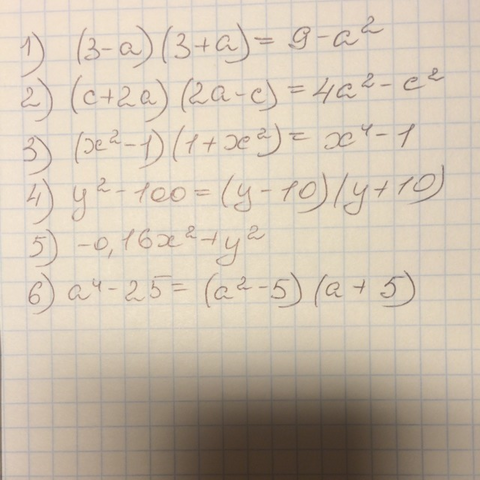 1) (3-a)(3+a)=9-a²
2) (c+2a)(2a-c)=4a²-c²
3) (x²-1)(1+x²)=x⁴-1
4) y²-100=(y-10)(y+10)
5) -0,16x²+y²
6) a⁴-25=(a²-5)(a+5)